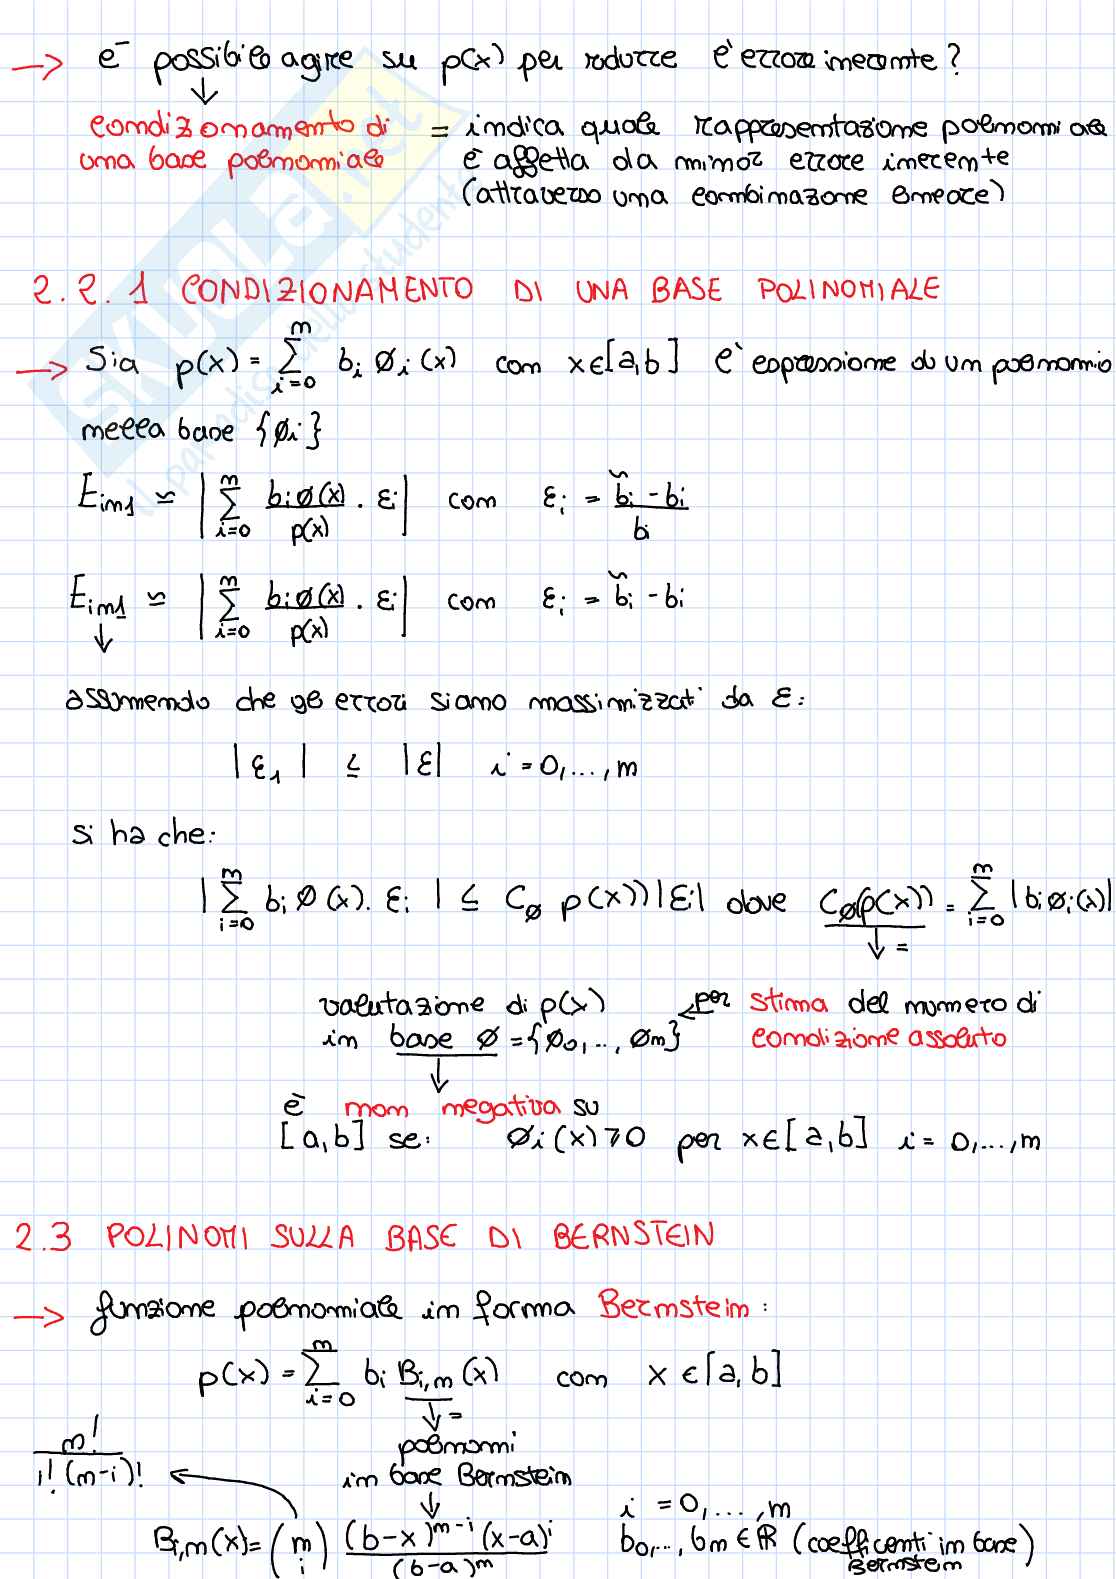 → è possibile agire su p(x) per ridurre l'errore inerente?
↓
condizionamento di una base polinomiale = indica quale rappresentazione polinomiale
è affetta da minor errore inerente
(attraverso una combinazione lineare)
2.2.1 CONDIZIONAMENTO DI UNA BASE POLINOMIALE
→ Sia p(x) = ∑_{i=0}^{n} b_i ø_i(x) con x∈[a,b] l'espressione di un polinomio
nella base {ø_i}
E_{in1} ≃ |∑_{i=0}^{n} (b_i ø(x))/p(x) · ε_i| con ε_i = (b̃_i - b_i)/b_i
E_{in1} ≃ |∑_{i=0}^{n} (b_i ø(x))/p(x) · ε_i| con ε_i = b̃_i - b_i
↓
assumendo che gli errori siano massimizzati da ε:
|ε_1| ≤ |ε| i = 0,...,n
si ha che:
|∑_{i=0}^{n} b_i ø(x). ε_i | ≤ C_ø p(x))|ε_i| dove C_ø(p(x)) = ∑_{i=0}^{n} |b_i ø_i(x)|
↓ =
valutazione di p(x) ← per stima del numero di
in base ø = {ø_0,..,ø_n} condizione assoluto
↓
è non negativa su
[a,b] se: ø_i(x) ≥ 0 per x∈[a,b] i = 0,...,n
2.3 POLINOMI SULLA BASE DI BERNSTEIN
→ funzione polinomiale in forma Bernstein:
p(x) = ∑_{i=0}^{n} b_i B_{i,n}(x) con x ∈ [a,b]
↓ =
polinomi
in base Bernstein
↓
n!/(i!(n-i)!) ←
B_{i,n}(x) = (n i) ((b-x)^{n-i} (x-a)^i)/(b-a)^n
i = 0,...,n
b_0,..,b_n ∈ ℝ (coefficenti in base Bernstein)
SKUOLA.net
il paradiso dello studente